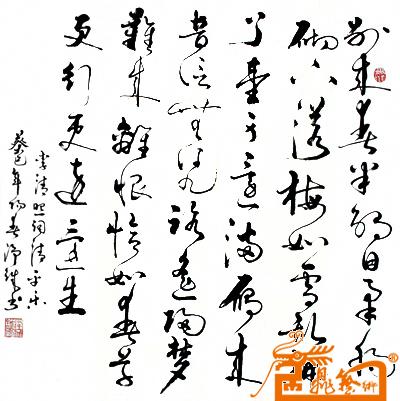 别来春半触目柔肠
砌下落梅如雪乱拂
了一身还满雁来
音信无凭路遥归梦
難成離恨恰如春草
更行更远还生
李清照词清平乐
癸巳年仲春书